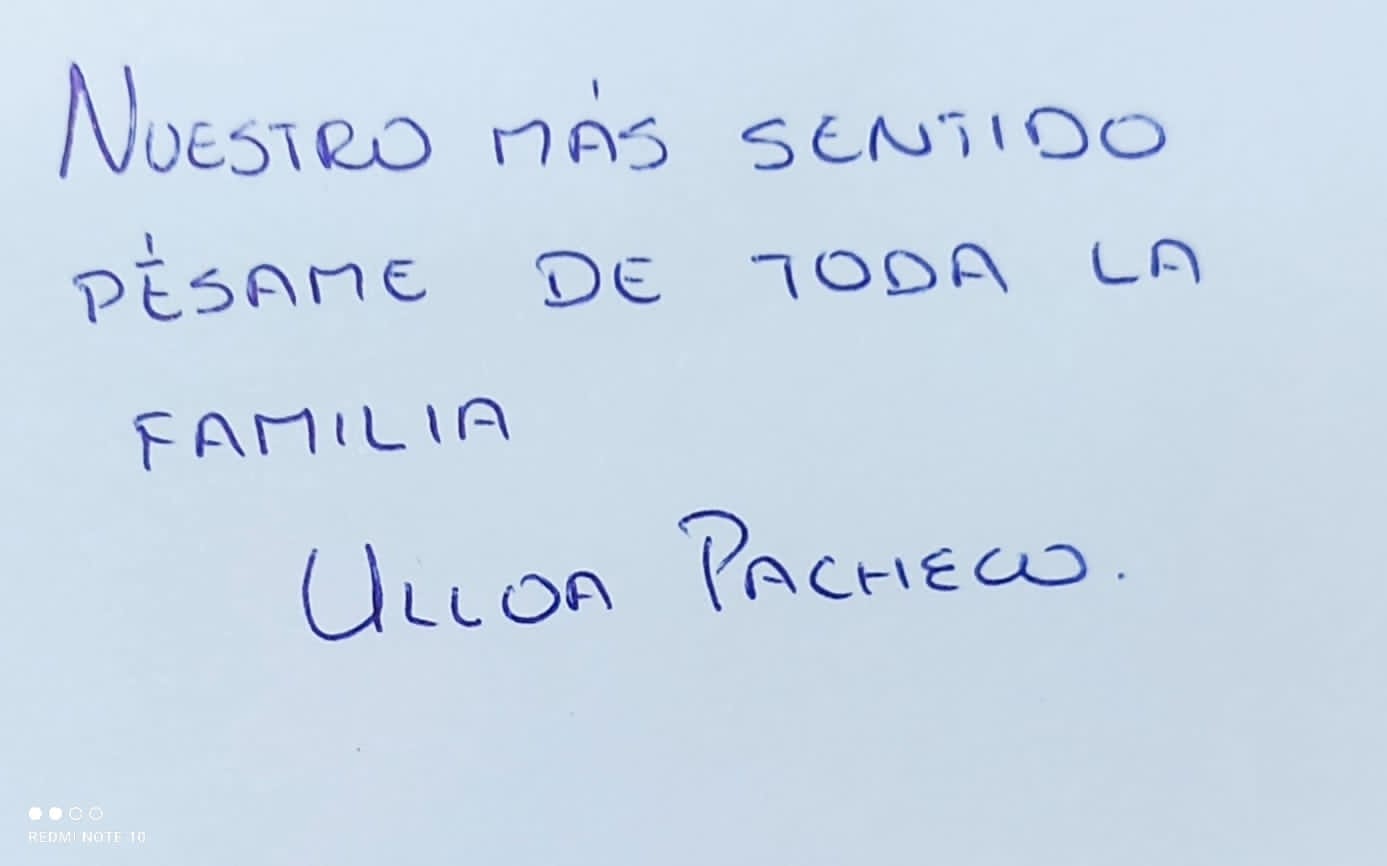 NUESTRO MÁS SENTIDO
PÉSAME DE TODA LA
FAMILIA
ULLOA PACHECO.
REDMI NOTE 10